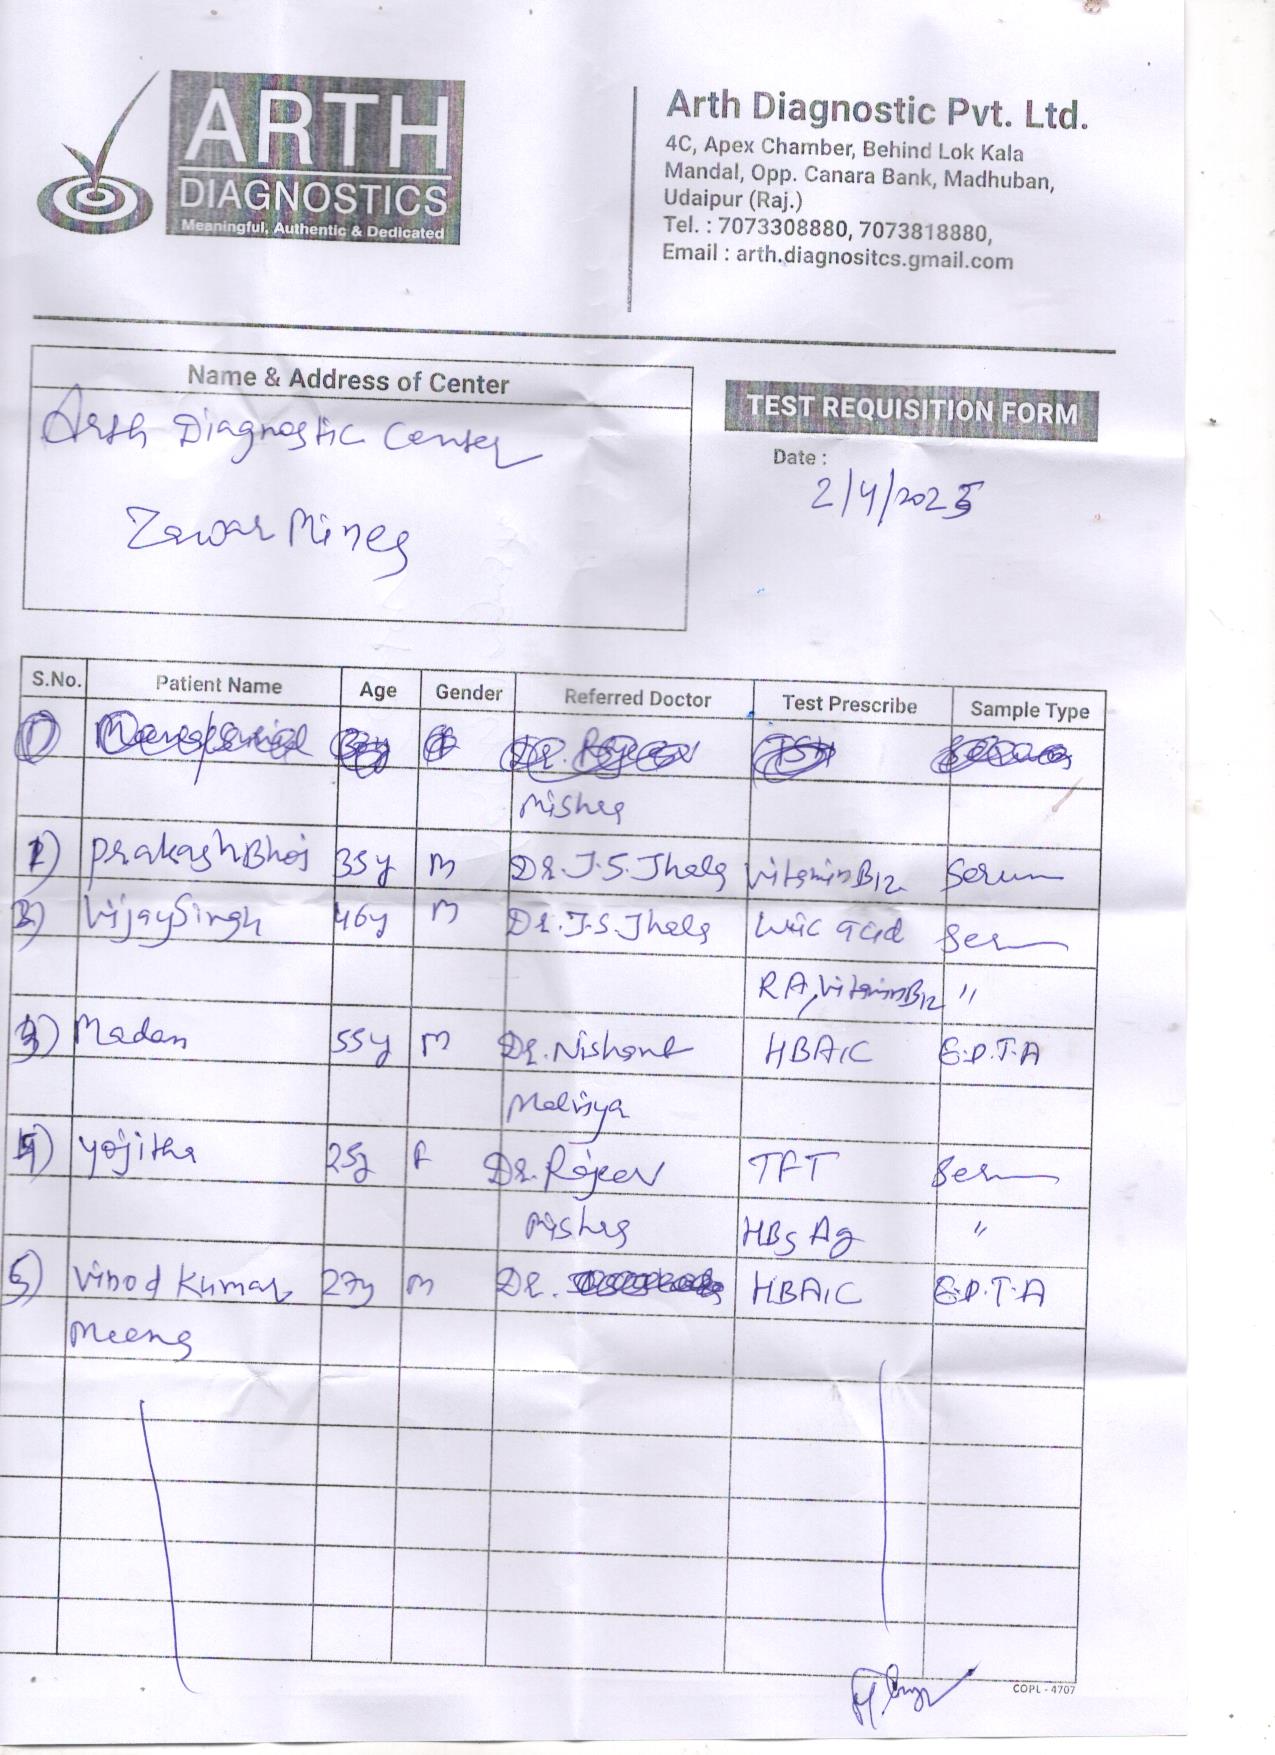 ARTH
DIAGNOSTICS
Meaningful, Authentic & Dedicated
Arth Diagnostic Pvt. Ltd.
4C, Apex Chamber, Behind Lok Kala
Mandal, Opp. Canara Bank, Madhuban,
Udaipur (Raj.)
Tel. : 7073308880, 7073818880,
Email : arth.diagnositcs.gmail.com
Name & Address of Center
Arth Diagnostic Center
Zawar Mines
TEST REQUISITION FORM
Date :
2/4/2025
S.No. Patient Name Age Gender Referred Doctor Test Prescribe Sample Type
1) Dr. TSH
Mishra
1) Prakash Bhoi 35y M Dr. J.S. Jhala Vitamin B12 Serum
2) Vijay Singh 46y M Dr. J.S. Jhala Uric acid Serum
RA, Vitamin B12 "
3) Madan 55y M Dr. Nishant HBA1C E.D.T.A
Malviya
4) Yojitha 25y F Dr. Rajeev TFT Serum
Mishra HBsAg "
5) Vinod Kumar 27y M Dr. HBA1C E.D.T.A
Meena
COPL - 4707